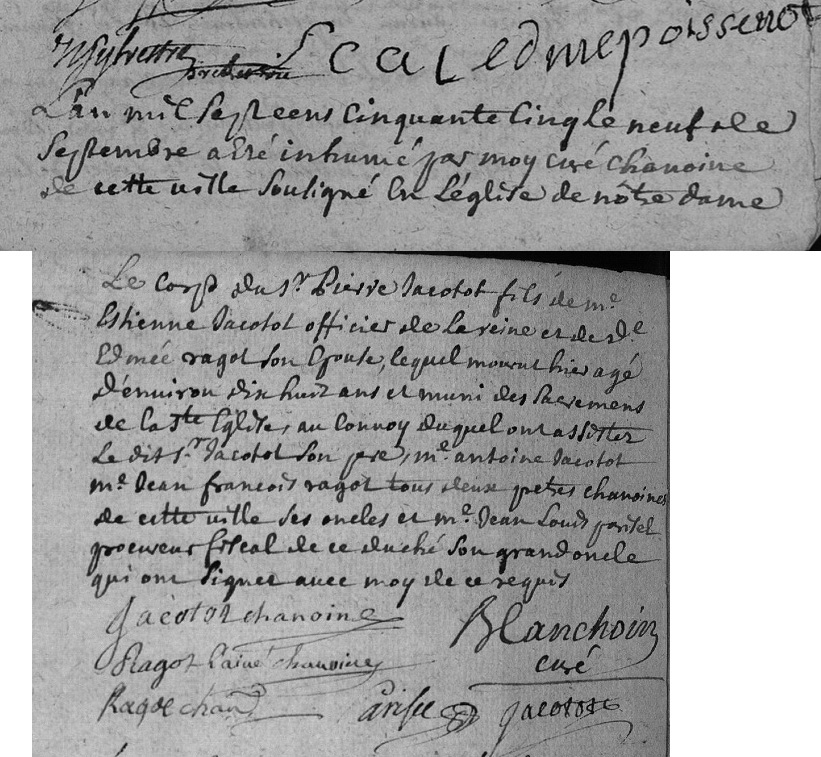 Sylvestre
Edmepoissenot
L'an mil Sept cens Cinquante Cinq Le neuf de
Septembre a eté inhumé par moy curé chanoine
de cette ville Souligné En L'église de nôtre dame
Le Corps du Sr Pierre Jacotot fils de me
Estienne Jacotot officier de La reine et de de
Edmée ragot Son Epouse, lequel mourut hier agé
d'environ dix huit ans et muni des Sacremens
de la Ste Eglise, au Convoy duquel ont assister
Le dit Sr Jacotot Son pere, me antoine Jacotot
me Jean francois ragot tous deux petres chanoines
de cette ville Ses oncles et me Jean Louis parisel
procureur fiscal de ce duché Son grand oncle
qui ont Signer avec moy de ce requis
Jacotot chanoine
Blanchoin
curé
Ragot L'ainé chanoine
Ragot chan
Jacotot